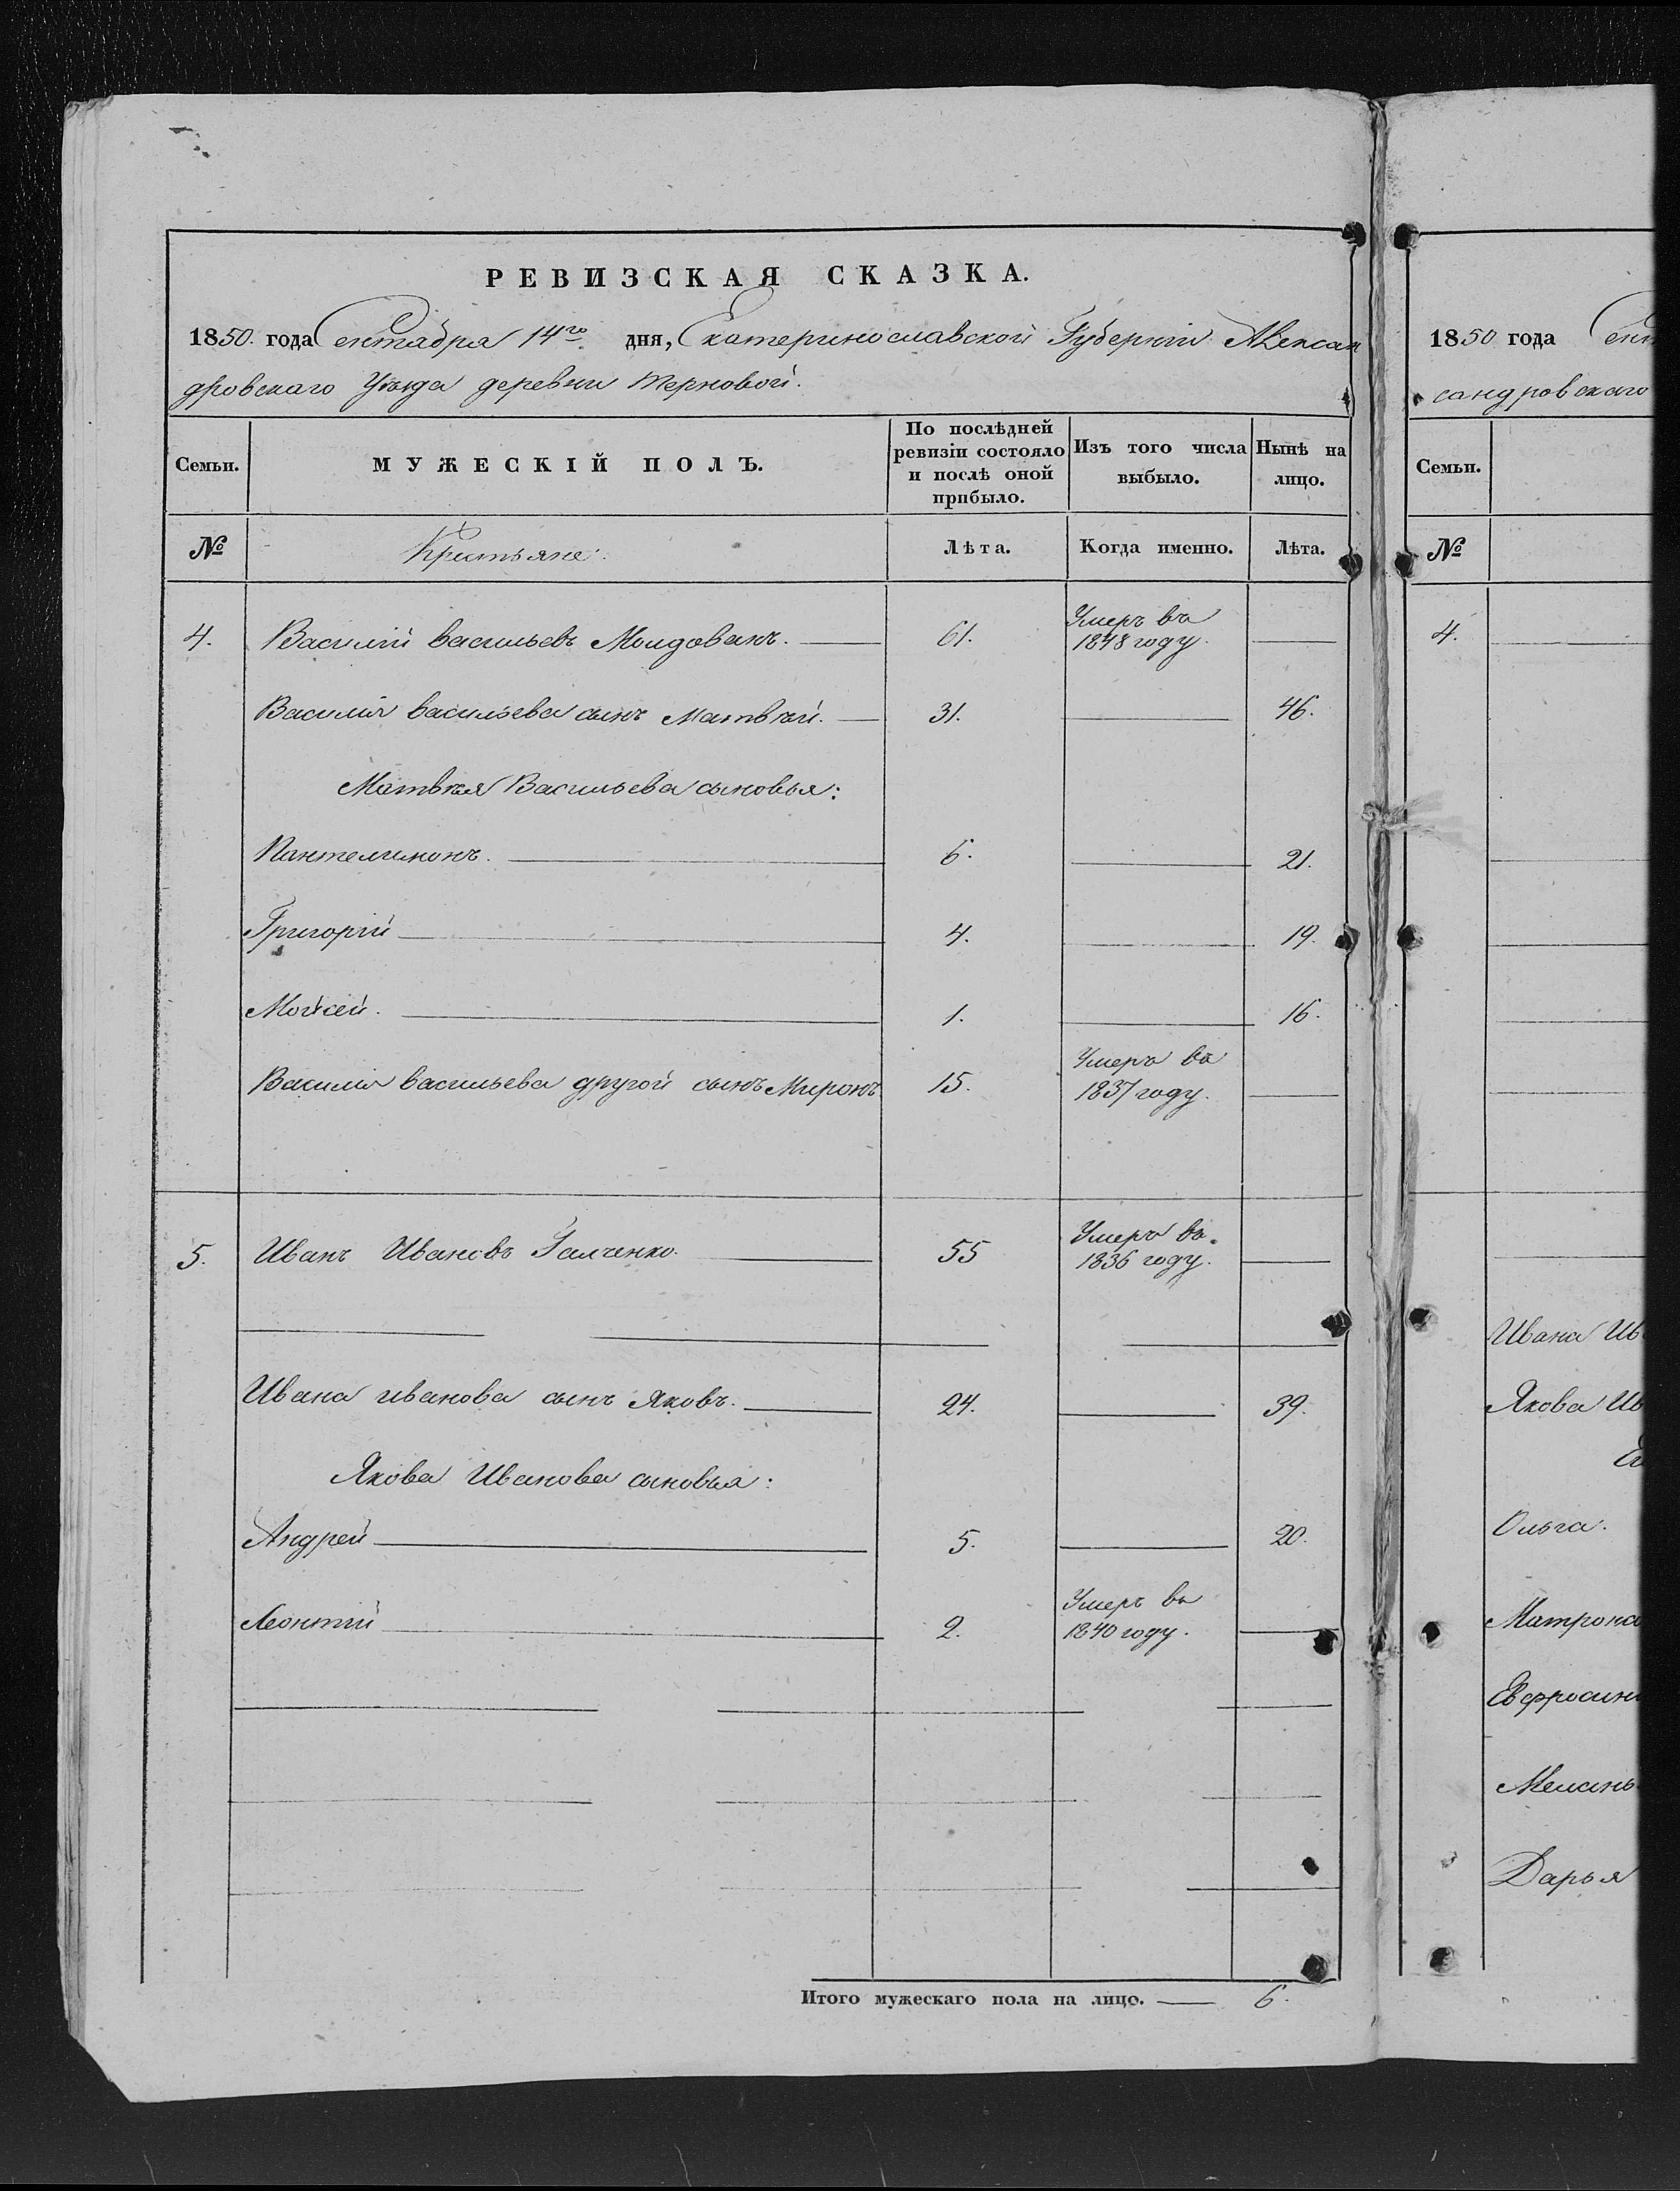 РЕВИЗСКАЯ СКАЗКА.
1850. года Сентября 14го дня, Екатеринославской Губерніи Алексан
дровскаго Уѣзда деревни Терновой.
Семьи.
МУЖЕСКІЙ ПОЛЪ.
По послѣдней ревизіи состояло и послѣ оной прибыло.
Изъ того числа выбыло.
Нынѣ на лицо.
№ Крестьяне. Лѣта. Когда именно. Лѣта.
4. Василій Васильевъ Молдованъ. 61. Умеръ въ 1848 году.
Василія Васильева сынъ Матвѣй. 31. 46.
Матвѣя Васильева сыновья:
Пантелимонъ. 6. 21.
Григорій 4. 19.
Мойсей. 1. 16.
Василія Васильева другой сынъ Миронъ 15. Умеръ въ 1837 году.
5. Иванъ Ивановъ Галченко. 55 Умеръ въ 1836 году.
Ивана Иванова сынъ Яковъ. 24. 39.
Якова Иванова сыновья:
Андрей 5. 20.
Леонтій 2. Умеръ въ 1840 году.
Итого мужескаго пола на лицо. 6.
1850 года Сен
сандровскаго
Семьи.
№
4.
Ивана Ив
Якова Ив
Ольга.
Матрона
Евфросин
Мелань
Дарья